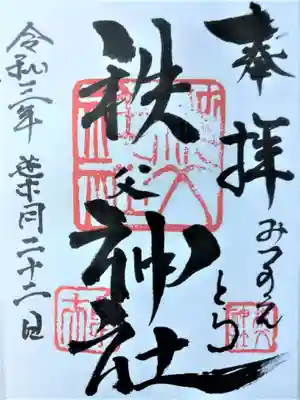 奉拝
みつのえ
とら
秩父神社
令和三年 葉月二十二日